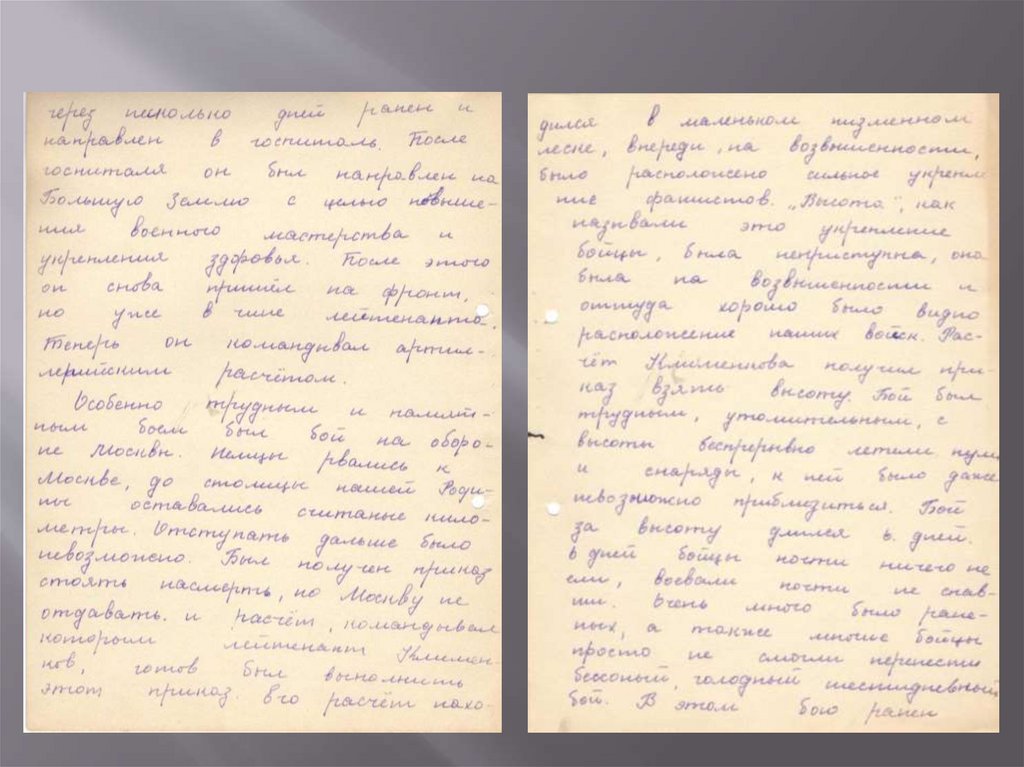 через несколько дней ранен и
направлен в госпиталь. После
госпиталя он был направлен на
Большую Землю с целью повыше-
ния военного мастерства и
укрепления здоровья. После этого
он снова пришёл на фронт,
но уже в чине лейтенанта.
Теперь он командывал артил-
лерийским расчётом.
Особенно трудным и памят-
ным боем был бой на оборо-
не Москвы. Немцы рвались к
Москве, до столицы нашей Роди-
ны оставались считаные кило-
метры. Отступать дальше было
невозможно. Был получен приказ
стоять насмерть, но Москву не
отдавать. И расчёт, командывал
которым лейтенант Климен-
ков, готов был выполнить
этот приказ. Его расчёт нахо-
дился в маленьком низменном
леске, впереди, на возвышенности,
было расположено сильное укрепле-
ние фашистов. „Высота", как
называли это укрепление
бойцы, была неприступна, она
была на возвышенности и
оттуда хорошо было видно
расположение наших войск. Рас-
чёт Клименкова получил при-
каз взять высоту. Бой был
трудным, утомительным, с
высоты беспрерывно летели пули
и снаряды, к ней было даже
невозможно приблизиться. Бой
за высоту длился 6 дней.
6 дней бойцы почти ничего не
ели, воевали почти не спав-
ши. Очень много было ране-
ных, а также многие бойцы
просто не смогли перенести
бессоный, голодный шестидневный
бой. В этом бою ранен